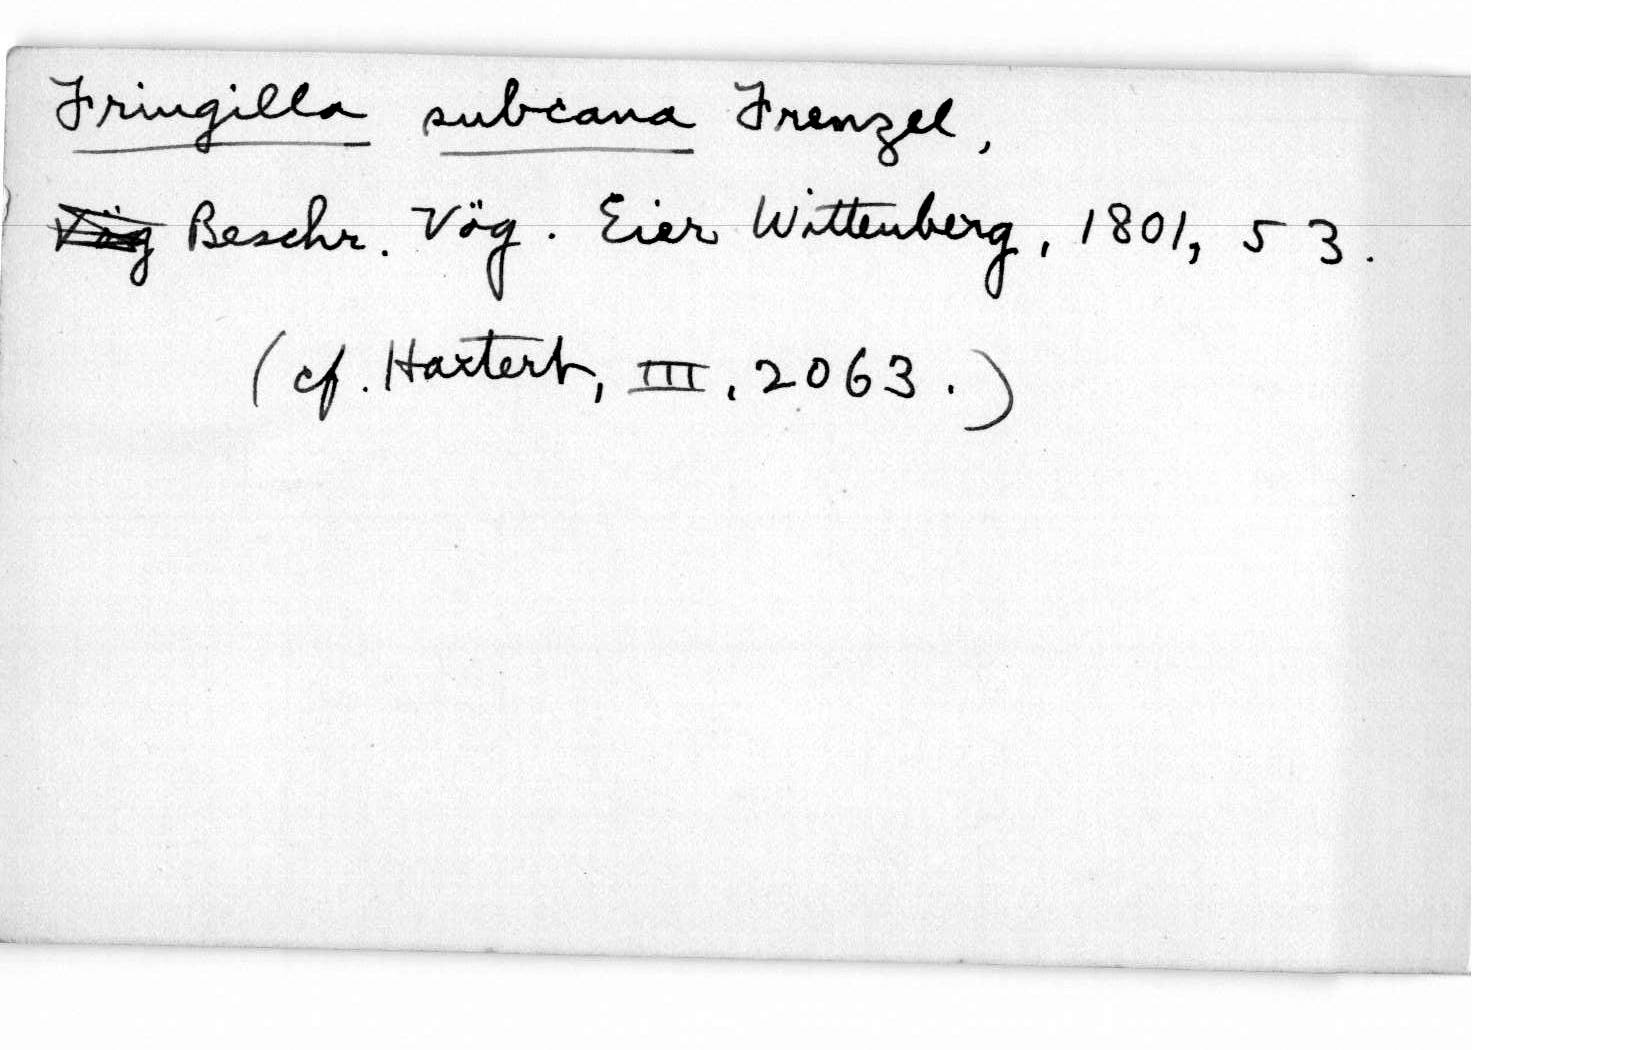 Fringilla subcana Frenzel,
Vög Beschr. Vög. Eier Wittenberg, 1801, 53.
(cf. Hartert, III, 2063.)